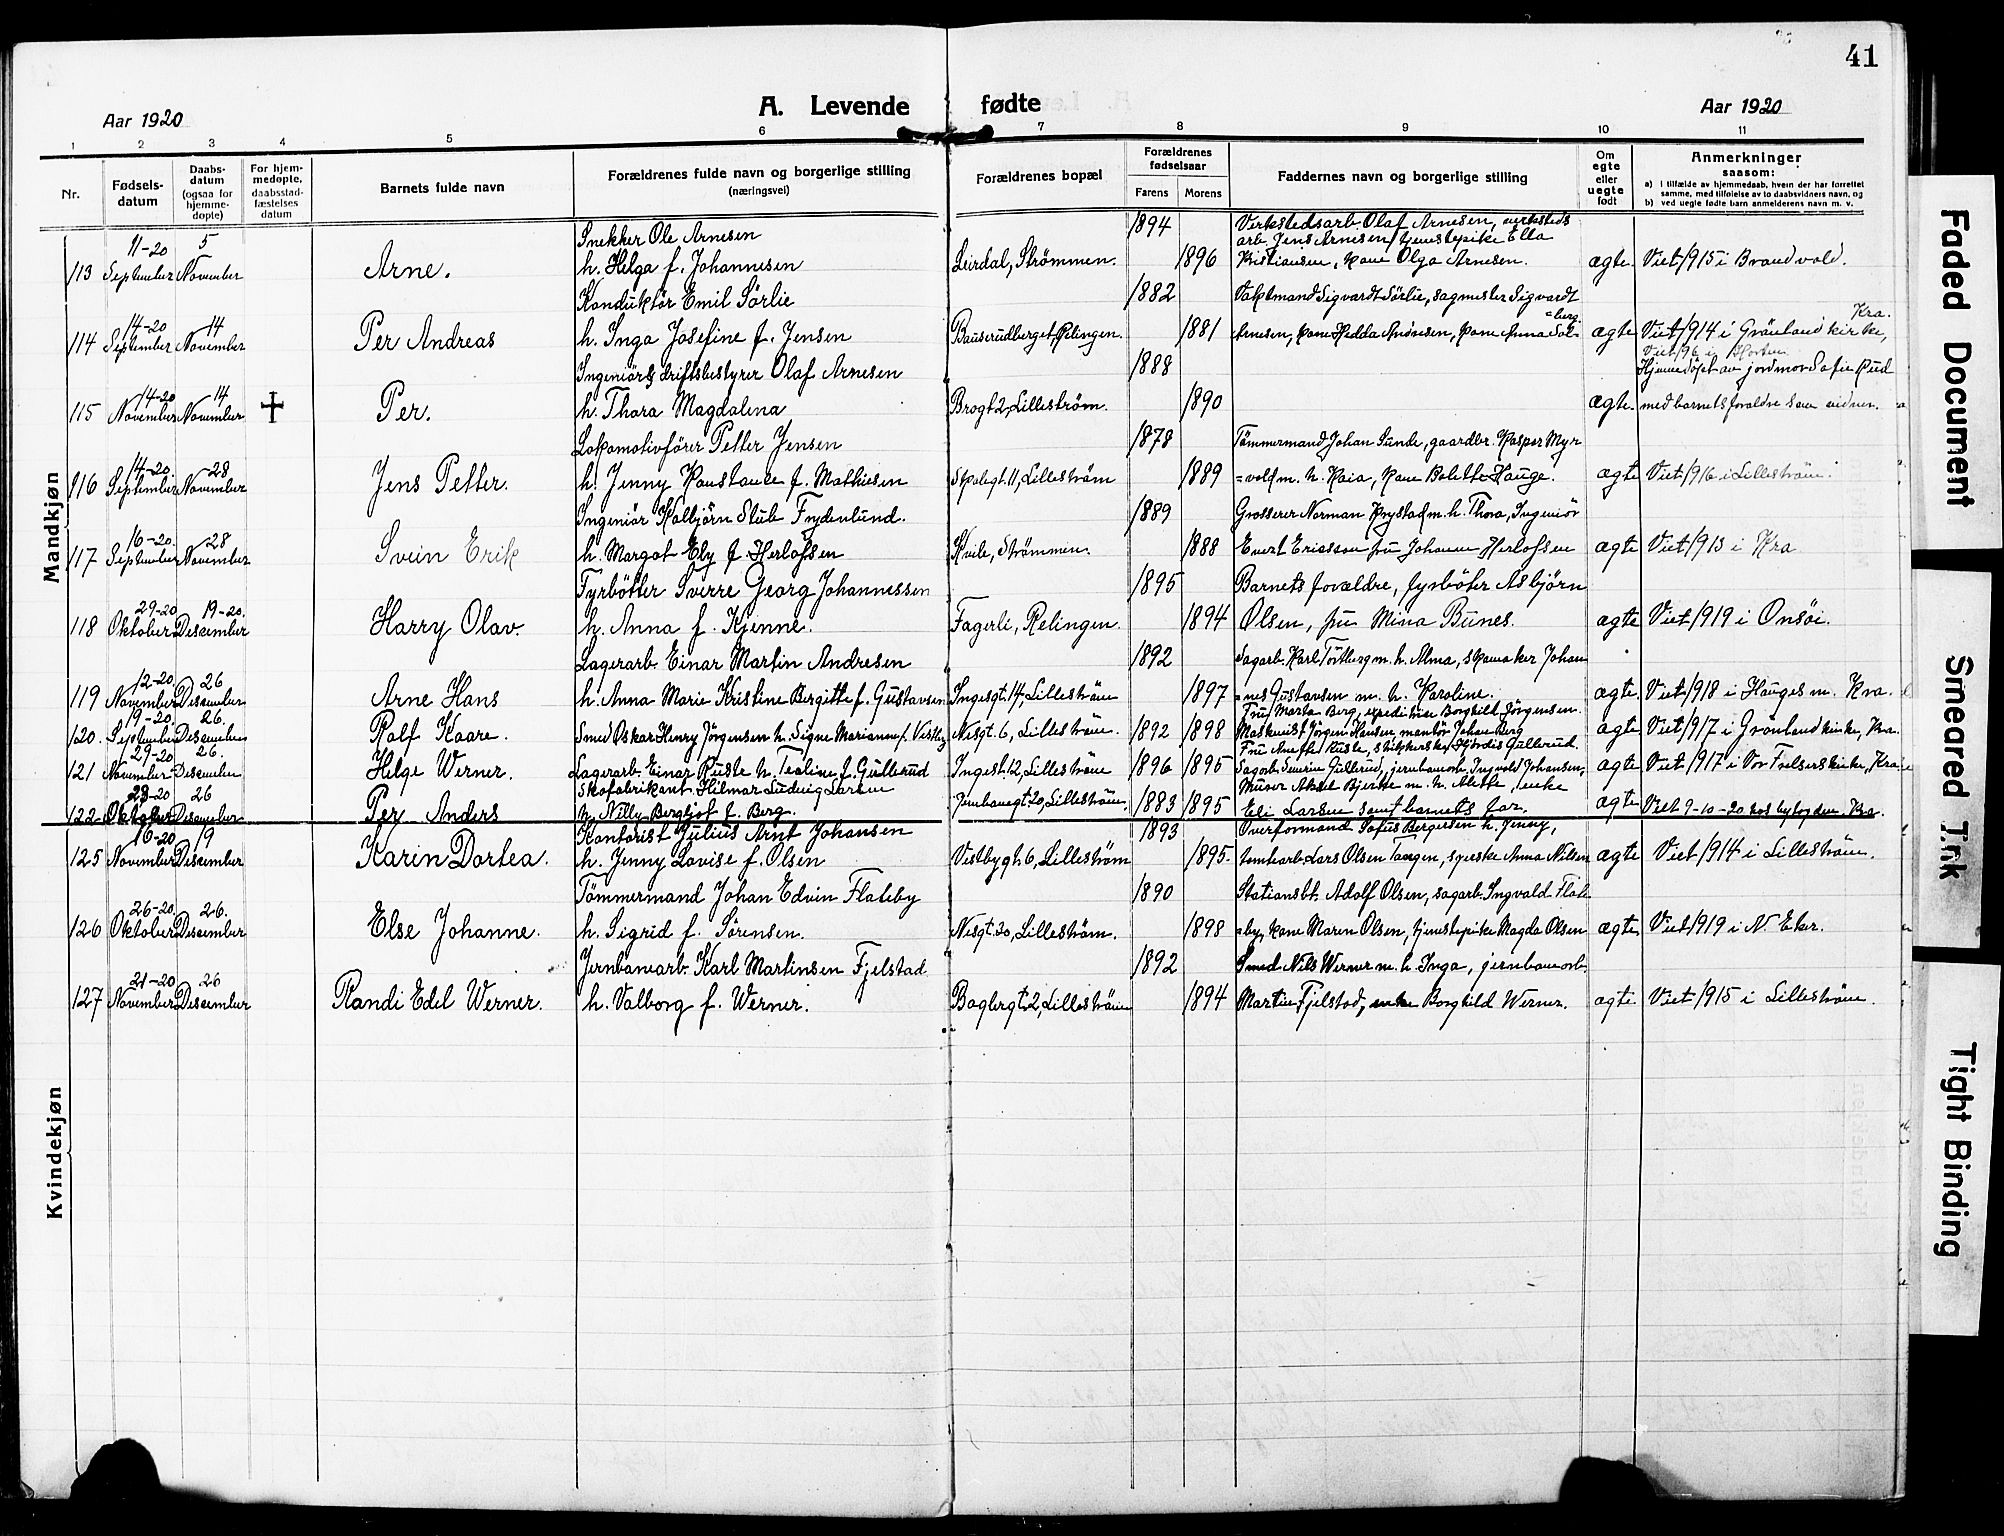 41
A. Levende fødte
Aar 1920
Aar 1920
1 2 3 4 5 6 7 8 9 10 11
Nr.
Fødsels-
datum
Daabs-
datum
(ogsaa for
hjemme-
døpte)
For hjem-
medøpte,
daabsstad-
fæstelses
datum
Barnets fulde navn
Forældrenes fulde navn og borgerlige stilling
(næringsvei)
Forældrenes bopæl
Forældrenes
fødselsaar
Farens
Morens
Faddernes navn og borgerlige stilling
Om
egte
eller
uegte
født
Anmerkninger
saasom:
a) i tilfælde av hjemmedaab, hvem der har forrettet
samme, med tilføielse av to daabsvidners navn, og
b) ved uegte fødte barn anmelderens navn m. v.
Mandkjøn
11-20 5 Snekker Ole Arnesen 1894 Verkstedsarb. Olaf Arnesen, verksteds
arb. Jens Arnesen, tjenestepike Ella
113 September November Arne. h. Helga f. Johannesen Leirdal, Strømmen. 1896 Kristiansen, kone Olga Arnesen. ægte Viet 1915 i Brandvold.
Konduktör Emil Sörlie 1882 Vaktmand Sigvardt Sörlie, sagmester Sigvardt
14-20 14 =berg. Kra.
114 September November Per Andreas h. Inga Josefine f. Jensen Bauserudberget, Relingen. 1881 Arnesen, kone Hedda Andresen, kone Anna Sol- ægte Viet 1914 i Grönland kirke,
Ingeniör & driftsbestyrer Olaf Arnesen 1888 Hjemmedöpt av jordmor Sofie Rud
14-20 14
115 November November Per. h. Thora Magdalena Brogt 2, Lilleström. 1890 ægte. med barnets forældre som vidner.
Lokomotivförer Petter Jensen 1878 Tömmermand Johan Sunde, gaardbr. Kasper Myr
14-20 28
116 September November Jens Petter. h. Jenny Konstanse f. Mathiesen Skolegt. 11, Lilleström 1889 =vold m. h. Kaia, kone Bolette Hauge. ægte Viet 1916 i Lilleström.
Ingeniör Halbjörn Stub Frydenlund. 1889 Grosserer Norman Krystad m. h. Thora, Ingeniör
16-20 28
117 September November Svein Erik h. Margot Ely f. Herlofsen Kvile, Strømmen. 1888 Evert Ericsson fru Johanne Herlofsen ægte Viet 1913 i Kra
Fyrbötter Sverre Georg Johannessen 1895 Barnets forældre, fyrböter Asbjörn
29-20 19-20.
118 Oktober Desember Harry Olav. h. Anna f. Kjenne. Fagerli, Relingen. 1894 Olsen, fru Mina Bunes. ægte Viet 1919 i Onsöi.
Lagerarb. Einar Martin Andresen 1892 Sagarb. Karl Töftberg m. h. Alma, skomaker Johan
12-20 26
119 November Desember Arne Hans h. Anna Marie Kristine Bergitte f. Gustavsen Ingesgt. 14, Lilleström 1897 =nes Gustavsen m. h. Karoline. ægte. Viet 1918 i Hauges m. Kra.
19-20. 26. Fru Marta Berg, expeditrise Borghild Jörgensen.
120. September Desember Rolf Kaare. Smed Oskar Henry Jörgensen h. Signe Marianne f. Vestby Nesgt. 6, Lilleström. 1892 1898 Maskinist Jörgen Hansen, montör Johan Berg ægte Viet 1917 i Grönland kirke, Kra.
29-20 26. Fru Anette Ruste, Hjördis Gullerud.
121 November Desember Helge Werner. Lagerarb. Einar Ruste h. Tealine f. Gullerud Ingest. 12, Lilleström 1896 1895 Sagarb. Severin Gullerud, jernbanearb. Ingvold Johansen, ægte Viet 1917 i Vor Frelsers kirke, Kra
23-20 26 Skofabrikant Hilmar Ludvig Larsen Murer Aksel Bjerke m. h. Alette, enke
122 Oktober Desember Per Anders h. Nilly Bergljot f. Berg. Jernbanegt. 20, Lilleström. 1883 1895 Eli Larsen samt barnets far. ægte Viet 9-10-20 hos byfogden. Kra.
Kvindekjøn
16-20 19 Kontorist Julius Arnt Johansen 1893 Overformand Sofus Bergersen h. Jenny,
125 November Desember Karin Dortea. h. Jenny Lovise f. Olsen Vestbygt. 6, Lilleström 1895. tomtearb. Lars Olsen Tangen, syerske Anna Nilsen ægte Viet 1914 i Lilleström.
Tömmermand Johan Edvin Flateby 1890 Stationsbt. Adolf Olsen, sagarb. Ingvald Flat-
26-20 26.
126 Oktober Desember Else Johanne. h. Sigrid f. Sörensen. Nesgt. 20, Lilleström. 1898 =eby, kone Maren Olsen, tjenestepike Magda Olsen ægte Viet 1919 i N. Eker.
Jernbanearb. Karl Martinsen Fjelstad 1892 Smed Nils Werner m. h. Inga, jernbanearb.
21-20 26
127 November Desember Randi Edel Werner. h. Valborg f. Werner. Boglergt. 2, Lilleström 1894 Martin Fjelstad, enke Borghild Werner. ægte Viet 1915 i Lilleström.
Faded Document
Smeared Ink
Tight Binding